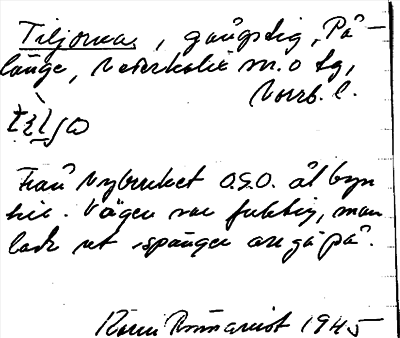 Tiljorna, gångstig, På-
länge, Nederkalix sn. o tg,
Norrb. l.
Från Nybruket O.S.O. åt byn
hit. Vägen var fuktig, man
lade ut spänger att gå på.
1945